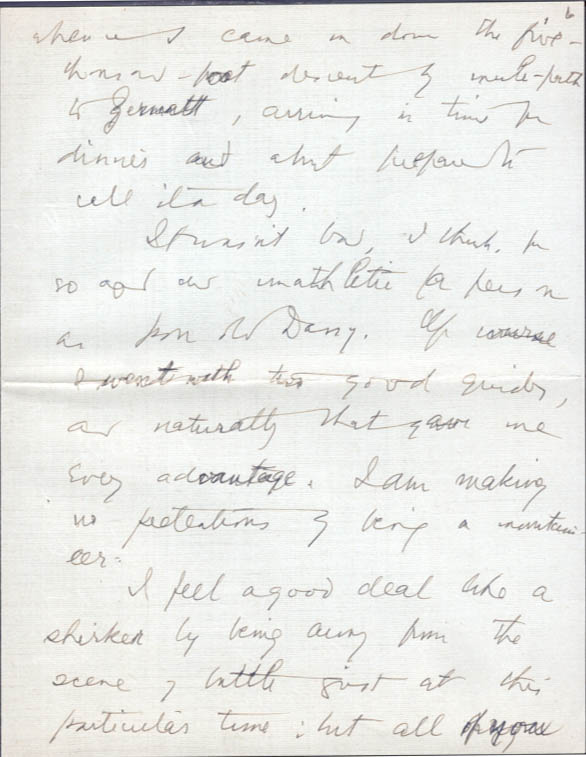 6
whence I came in down the five-
thousand-foot descent of mule-path
to Zermatt, arriving in time for
dinner and about prepared to
call it a day.
It wasn't bad, I think, for
so aged and unathletic a person
as poor old Dany. Of course
I went with two good guides,
and naturally that gave me
every advantage. I am making
no pretentions of being a mountain-
eer.
I feel a good deal like a
shirker by being away from the
scene of battle just at this
particular time: but all of you